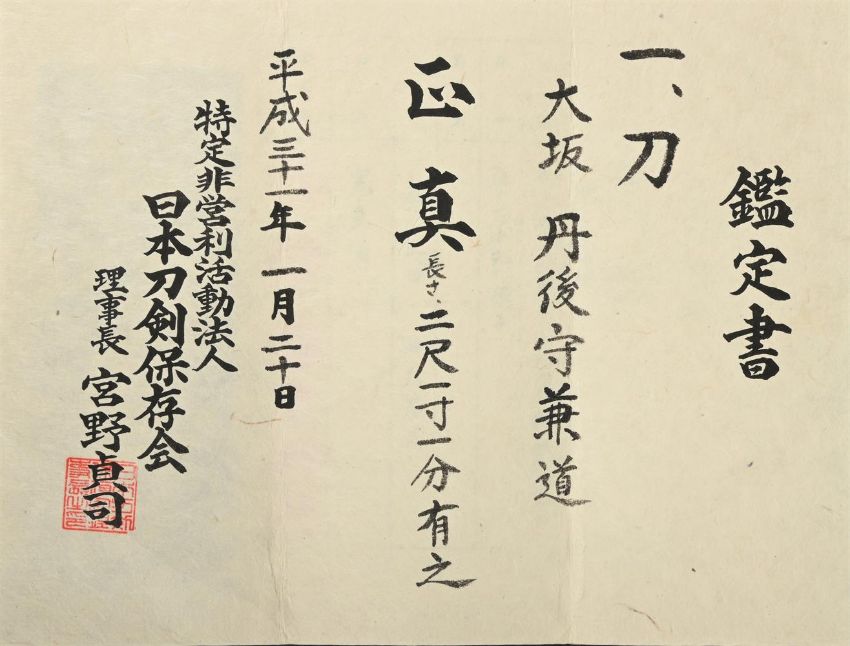 鑑定書
一、刀
大坂 丹後守兼道
正真 長さ、二尺一寸一分有之
平成三十一年一月二十日
特定非営利活動法人
日本刀剣保存会
理事長 宮野貞司